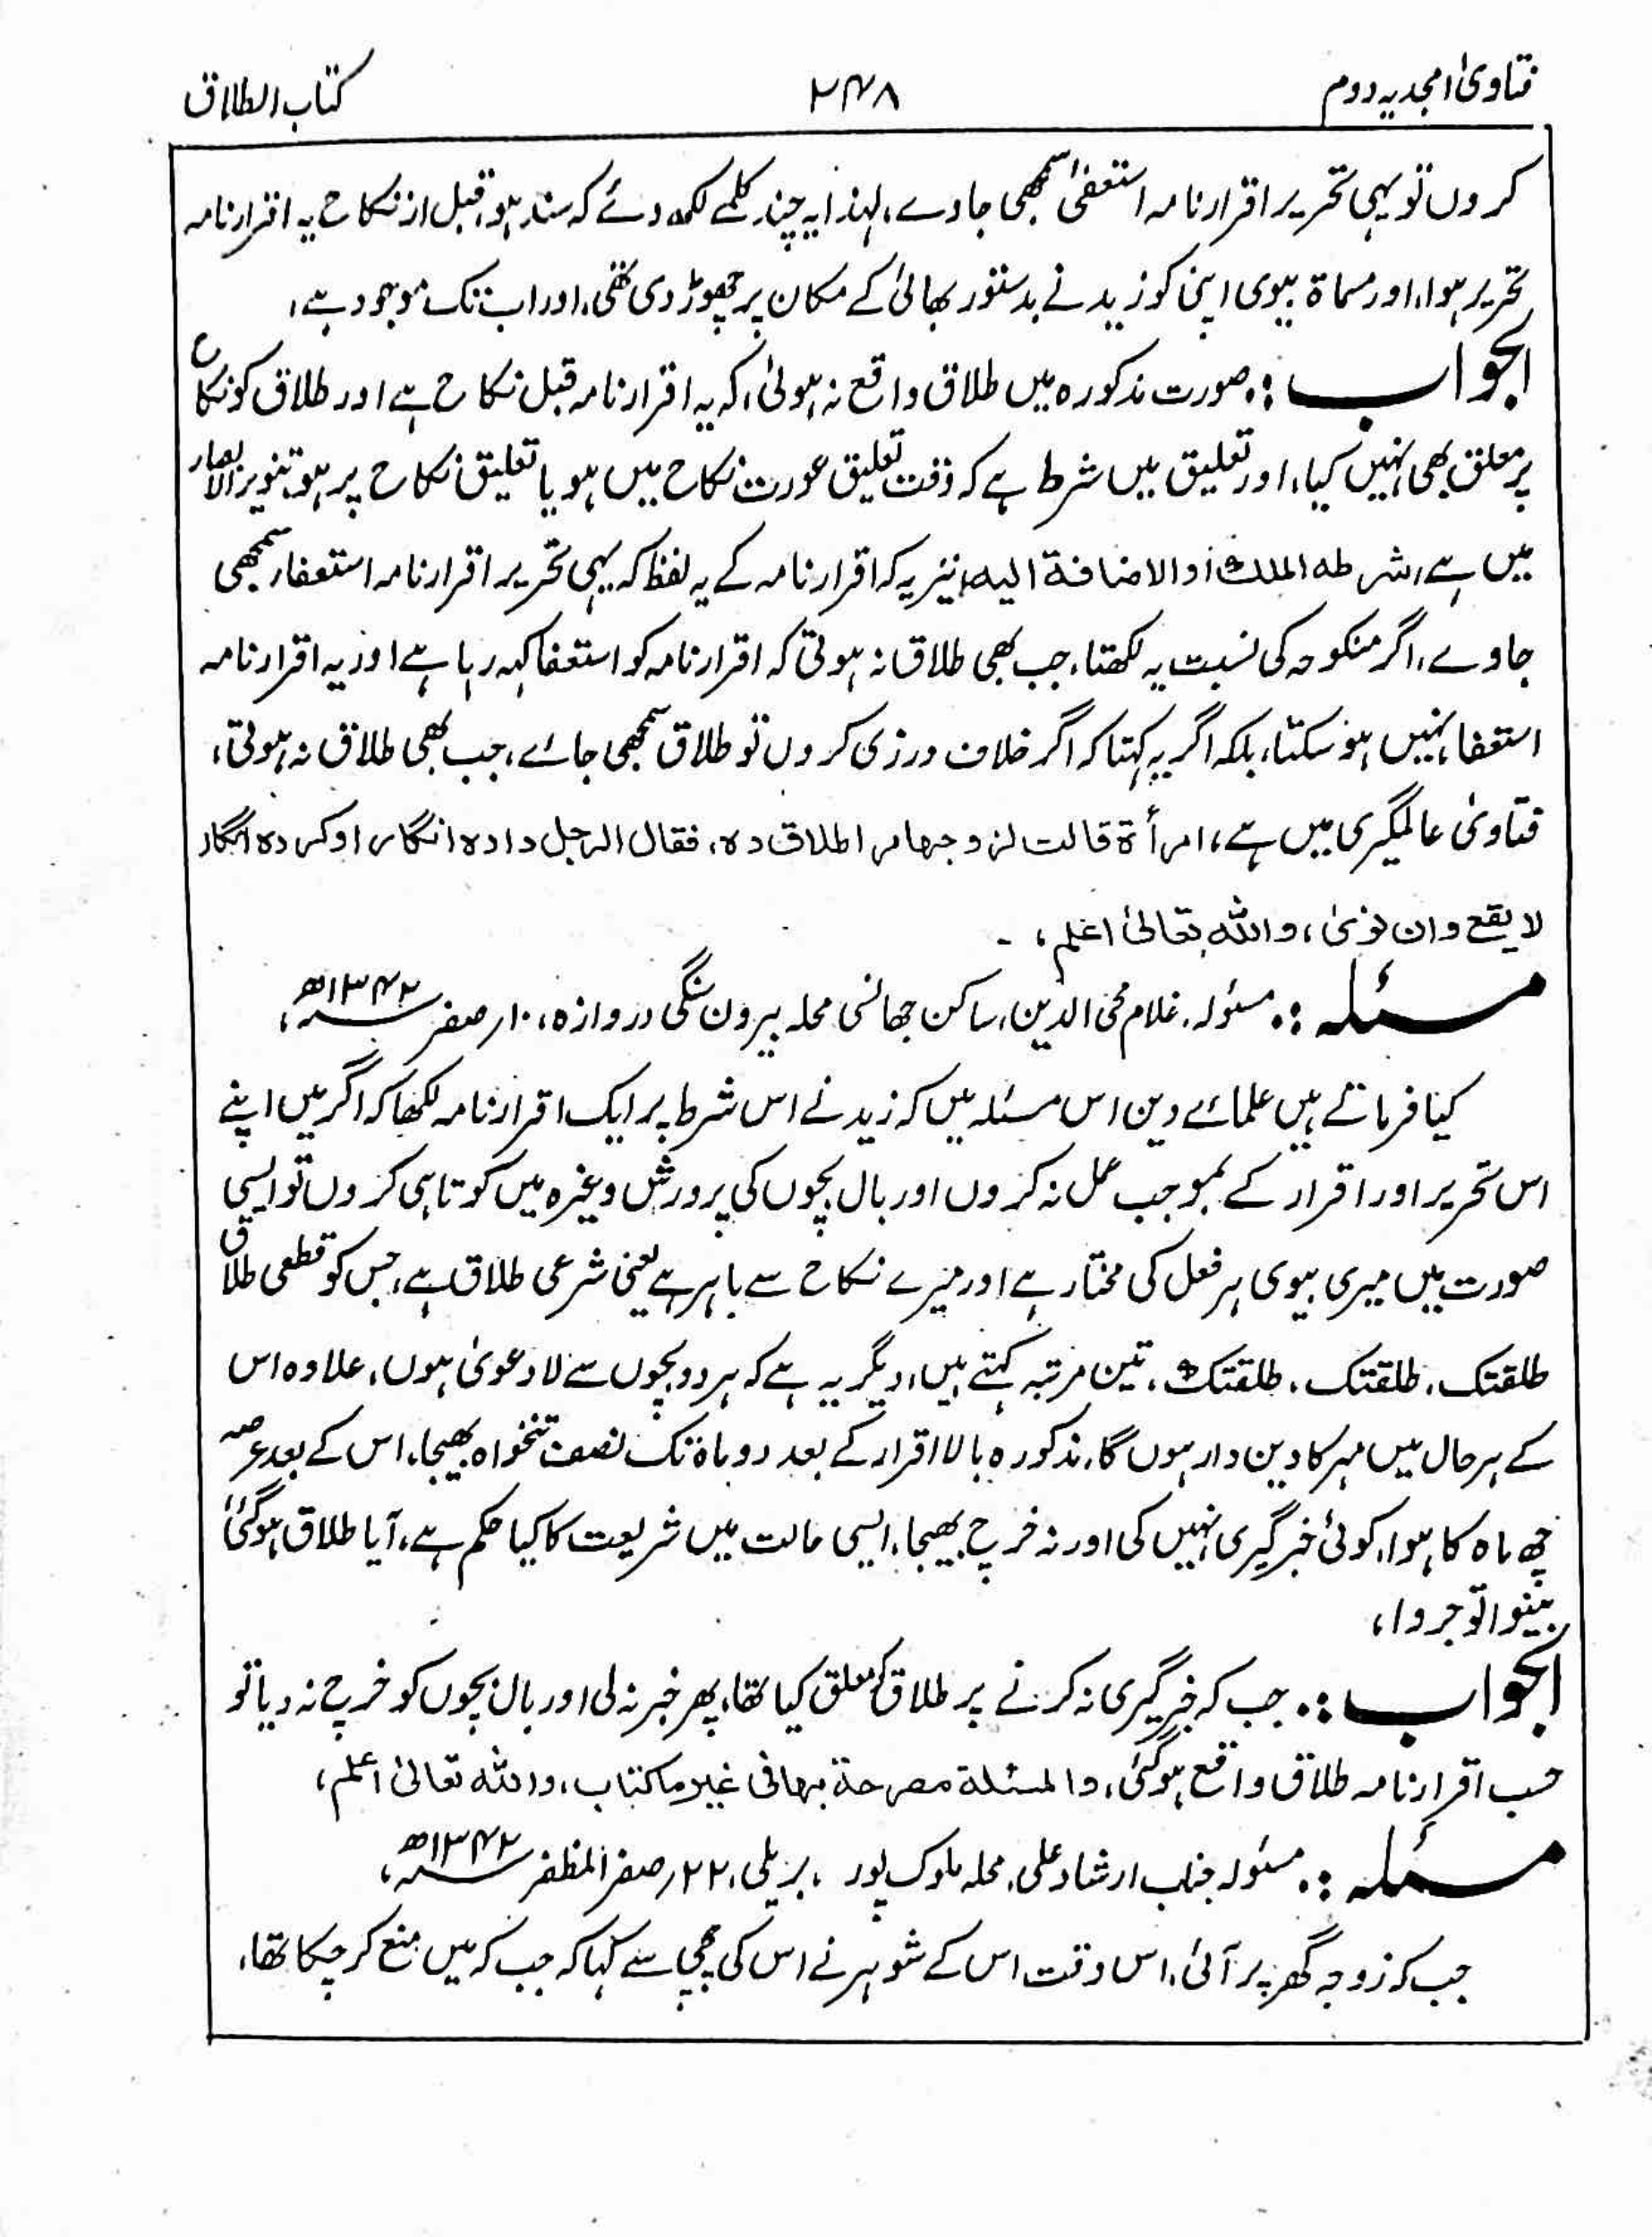 فتاویٰ امجدیہ دوم
۲۴۸
کتاب الطلاق
کروں تو یہی تحریر اقرارنامہ استعفیٰ سمجھی جاوے، لہٰذا یہ چند کلمے لکھ دئے کہ سند ہو، قبل از نکاح یہ اقرارنامہ
تحریر ہوا، اور مسماۃ بیوی اپنی کو زید نے بدستور بھائی کے مکان پر چھوڑ دی تھی، اور اب تک موجود ہے،
الجواب :۔ صورت مذکورہ میں طلاق واقع نہ ہوئی، کہ یہ اقرارنامہ قبل نکاح ہے اور طلاق کو نکاح
پر معلق بھی نہیں کیا، اور تعلیق میں شرط ہے کہ وقت تعلیق عورت نکاح میں ہو یا تعلیق نکاح پر ہو، تنویر الابصار
میں ہے، شرطه الملك أو الاضافة اليه، نیز یہ کہ اقرارنامہ کے یہ لفظ کہ یہی تحریر اقرارنامہ استعفار سمجھی
جاوے، اگر منکوحہ کی نسبت یہ لکھتا، جب بھی طلاق نہ ہوتی کہ اقرارنامہ کو استعفا کہہ رہا ہے اور یہ اقرارنامہ
استعفا نہیں ہو سکتا، بلکہ اگر یہ کہتا کہ اگر خلاف ورزی کروں تو طلاق سمجھی جائے، جب بھی طلاق نہ ہوتی،
فتاویٰ عالمگیری میں ہے، امرأة قالت لزوجها مرا طلاق ده، فقال الرجل داده انگار اوکرده انگار
لا يقع وان نوىٰ، والله تعالىٰ اعلم، ۔
مسئلہ :۔ مسئولہ، غلام محی الدین، ساکن جھانسی محلہ بیرون سنگی دروازہ، ۱۰ر صفر سنہ ۱۳۴۲ھ،
کیا فرماتے ہیں علمائے دین اس مسئلہ میں کہ زید نے اس شرط پر ایک اقرارنامہ لکھا کہ اگر میں اپنے
اس تحریر اور اقرار کے بموجب عمل نہ کروں اور بال بچوں کی پرورش وغیرہ میں کوتاہی کروں تو ایسی
صورت میں میری بیوی ہر فعل کی مختار ہے اور میرے نکاح سے باہر ہے یعنی شرعی طلاق ہے، جس کو قطعی طلاق
طلقتک، طلقتک، طلقتک، تین مرتبہ کہتے ہیں، دیگر یہ ہے کہ ہر دو بچوں سے لا دعویٰ ہوں، علاوہ اس
کے ہر حال میں مہر کا دین دار ہوں گا، مذکورہ بالا اقرار کے بعد دو ماہ تک نصف تنخواہ بھیجا، اس کے بعد عرصہ
چھ ماہ کا ہوا، کوئی خبر گیری نہیں کی اور نہ خرچ بھیجا، ایسی حالت میں شریعت کا کیا حکم ہے، آیا طلاق ہوگئی،
بینوا توجروا،
الجواب :۔ جب کہ خبر گیری نہ کرنے پر طلاق کو معلق کیا تھا، پھر خبر نہ لی اور بال بچوں کو خرچ نہ دیا تو
حسب اقرارنامہ طلاق واقع ہوگئی، والمسئلة مصرحة بها في غير ما كتاب، والله تعالىٰ اعلم،
مسئلہ :۔ مسئولہ جناب ارشاد علی، محلہ ملوک پور، بریلی، ۲۲ر صفر المظفر سنہ ۱۳۴۲ھ،
جب کہ زوجہ گھر پر آئی، اس وقت اس کے شوہر نے اس کی چچی سے کہا کہ جب کہ میں منع کر چکا تھا،